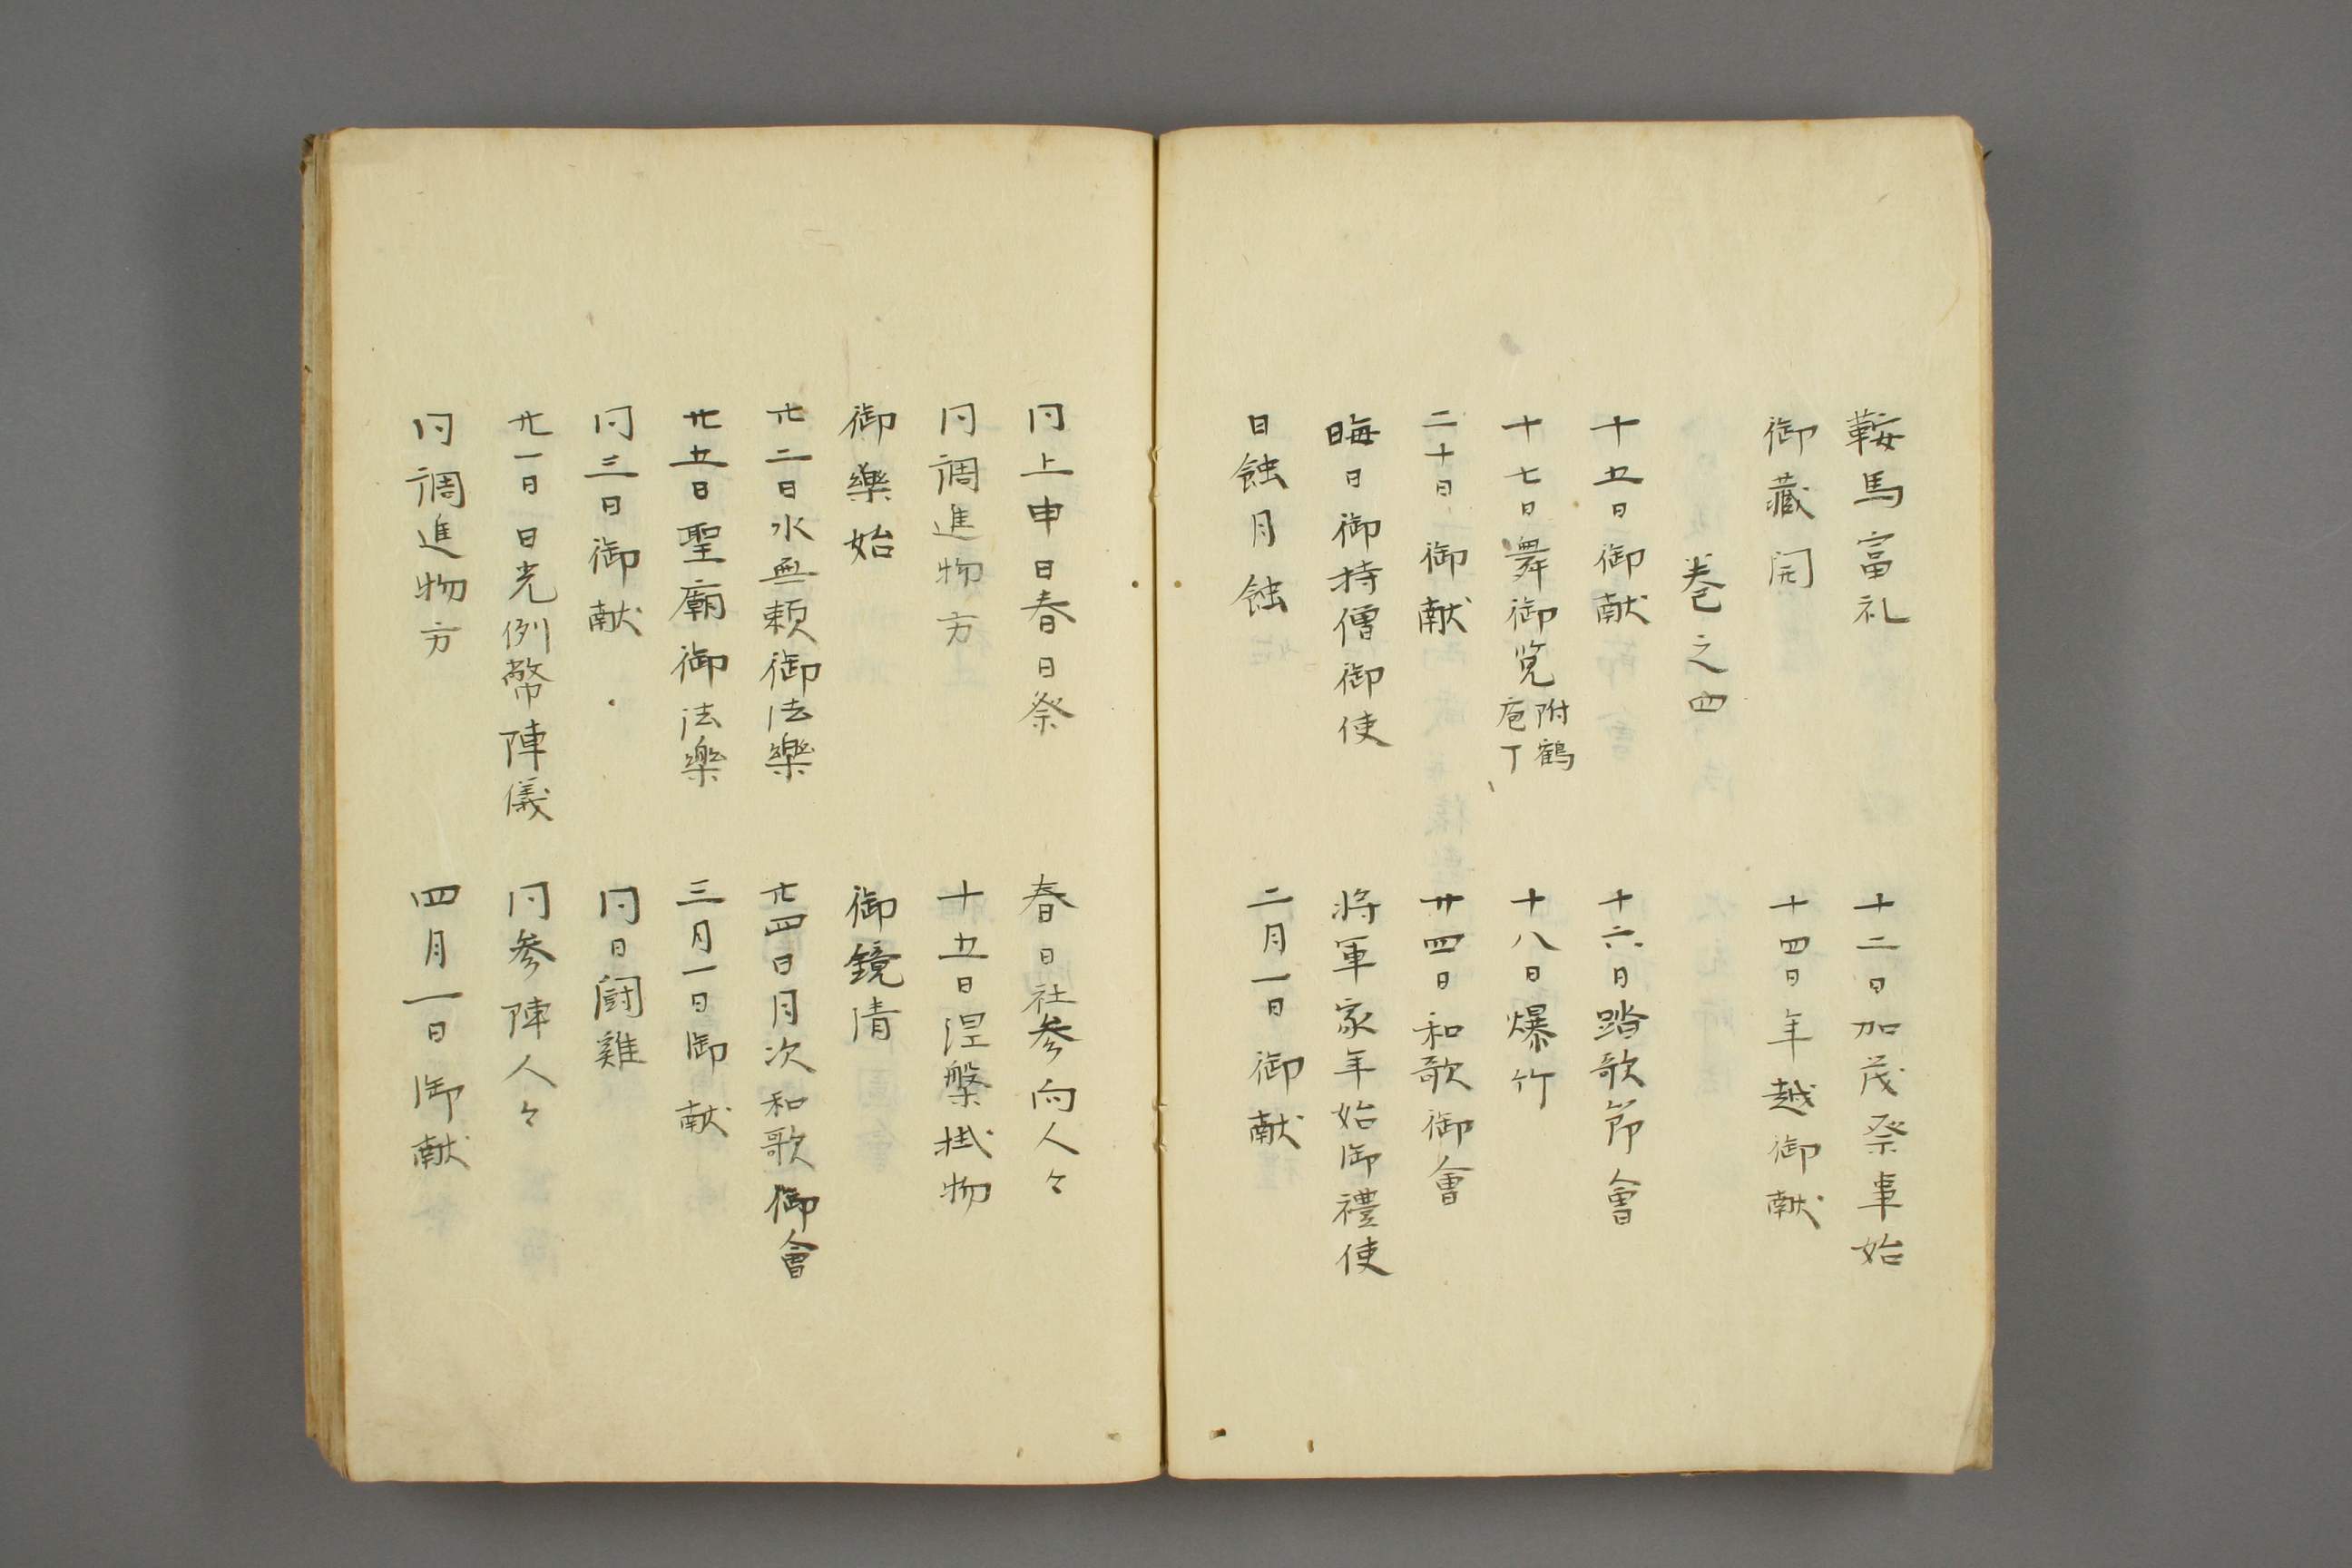 鞍馬富礼　十二日加茂祭事始
御藏開　十四日年越御献
巻之四
十五日御献　十六日踏歌節會
十七日舞御覧附鶴庖丁　十八日爆竹
二十日御献　廿四日和歌御會
晦日御持僧御使　將軍家年始御禮使
日蝕月蝕　二月一日御献
同上申日春日祭　春日社参向人々
同調進物方　十五日涅槃掛物
御樂始　御鏡清
廿二日水無頼御法樂　廿四日月次和歌御會
廿五日聖廟御法樂　三月一日御献
同三日御献　同日闘雞
廿一日日光例幣陣儀　同参陣人々
同調進物方　四月一日御献